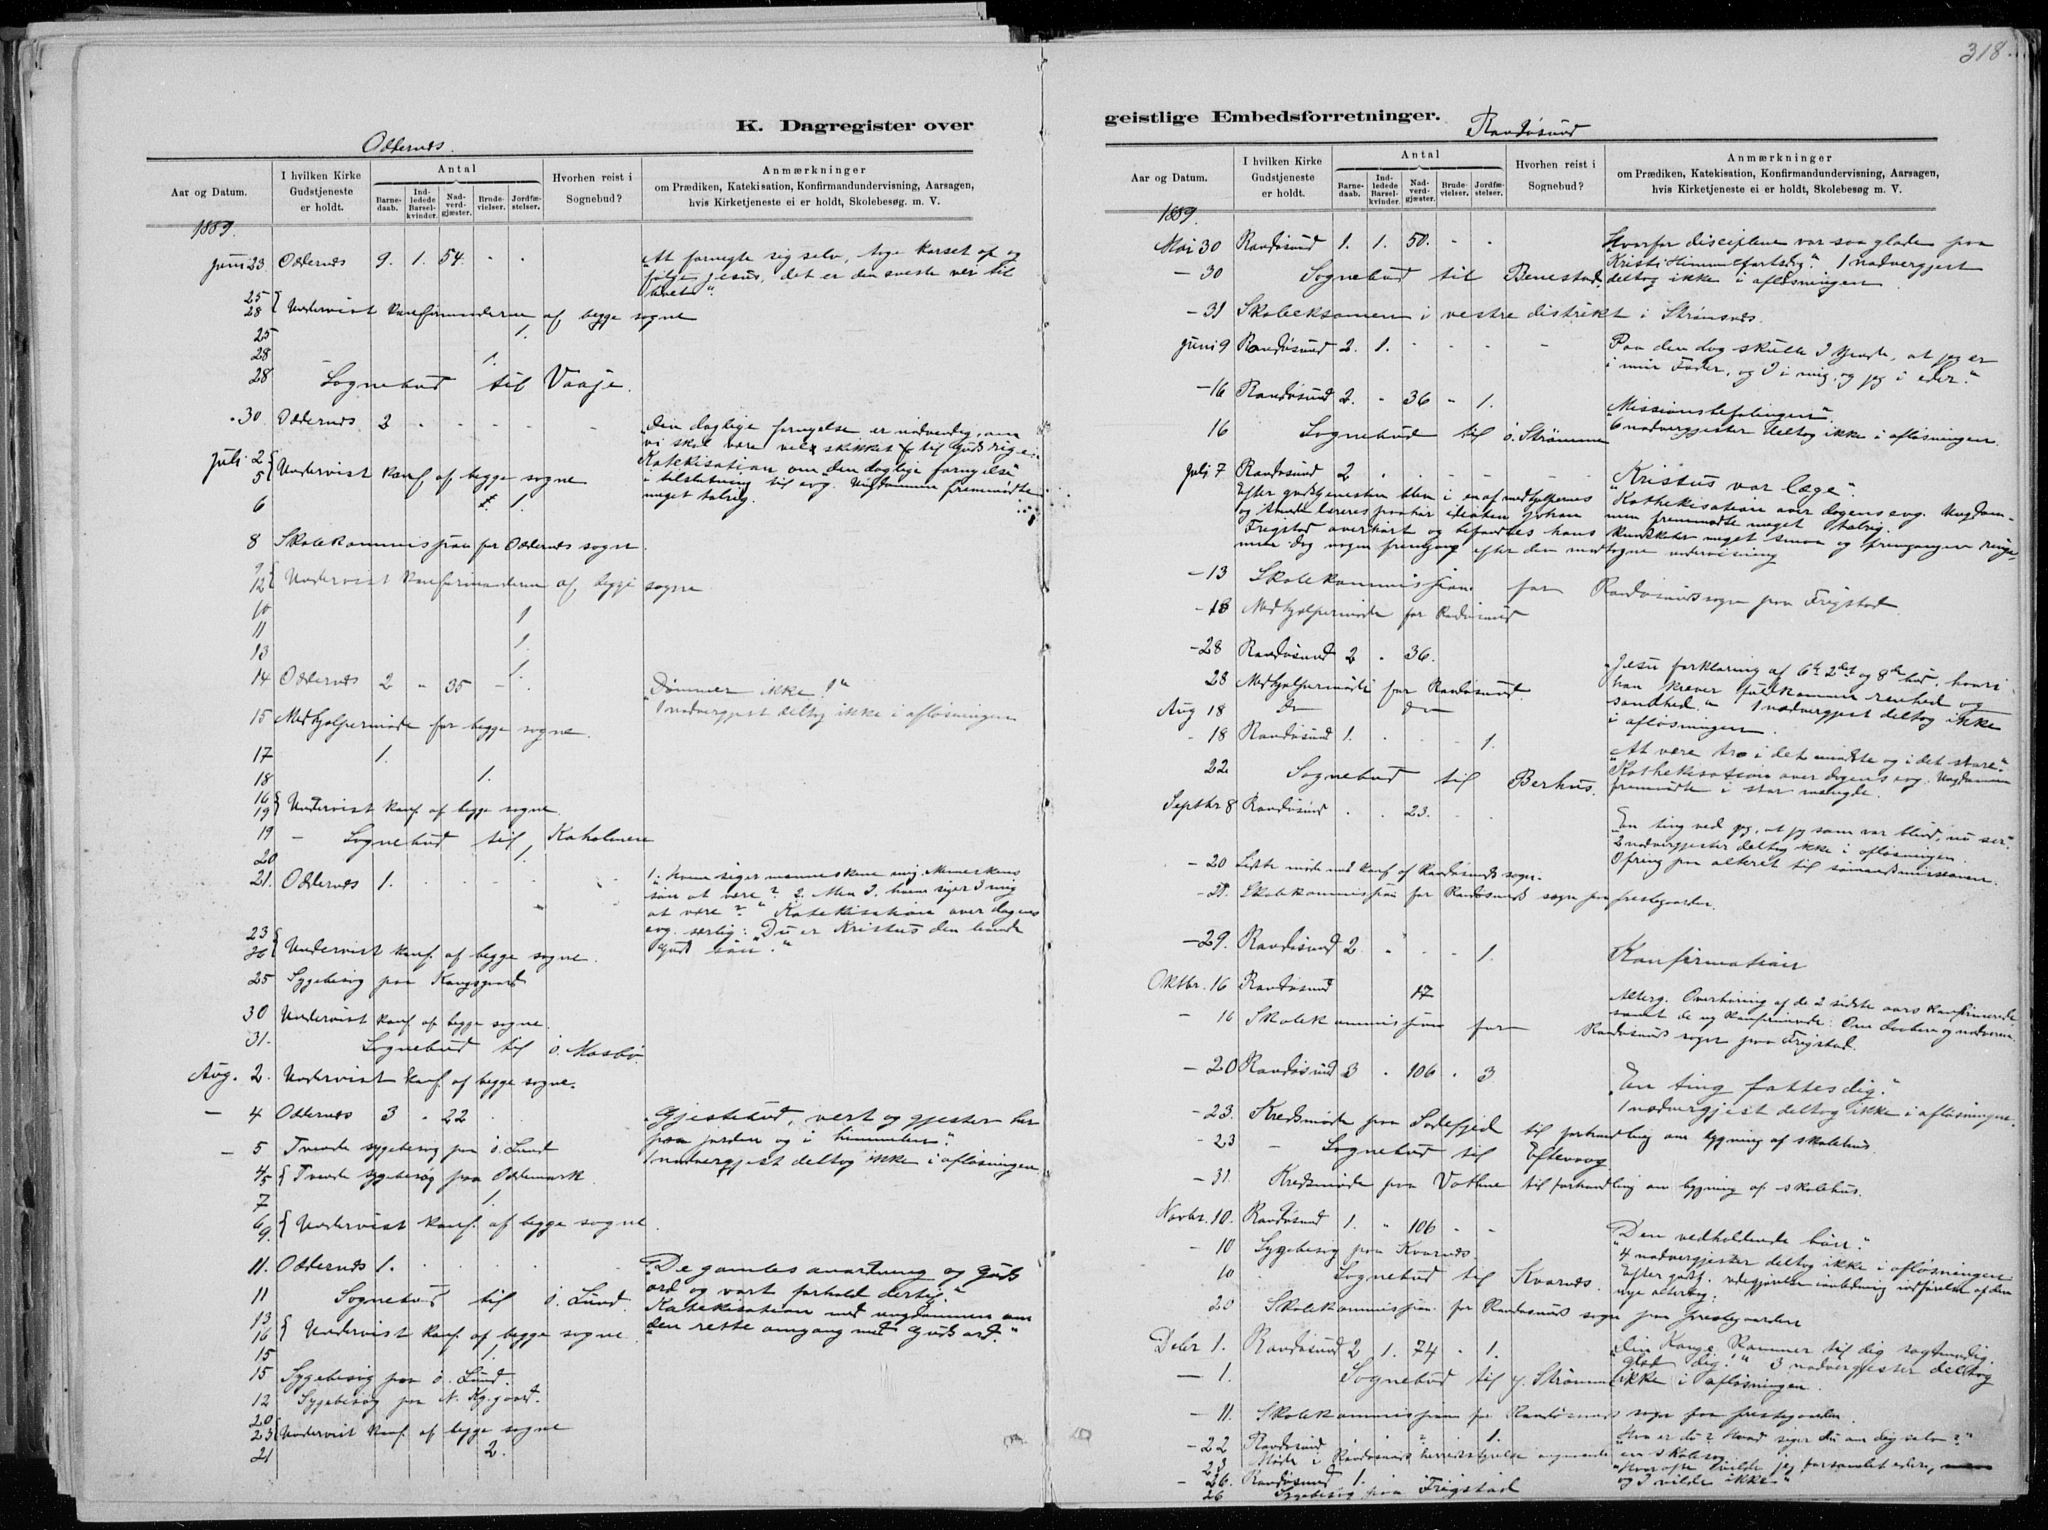 318.
K. Dagregister over
Oddernes.
Aar og Datum.
I hvilken Kirke Gudstjeneste er holdt.
Antal
Barnedaab.
Indledede Barselkvinder.
Nadverdgjæster.
Brudevielser.
Jordfæstelser.
Hvorhen reist i Sognebud?
Anmærkninger
om Prædiken, Katekisation, Konfirmandundervisning, Aarsagen,
hvis Kirketjeneste ei er holdt, Skolebesøg. m. V.
1889.
Juni 23. Oddernes 9. 1. 54. - - "At fornegte sig selv, tage korset op og
følge Jesus, det er den eneste vei til
livet".
25 28 { Undervist konfirmanderne af begge sogne
25 1.
28 1.
28 Sognebud til Vaaje.
30 Oddernes 2 Den daglige fornyelse er nødvendig, om
vi skal være vel skikket til Guds rige.
Juli 2 5 { Undervist konf. af begge sogne Katekisation om den daglige fornyelse
i tilslutning til evg. Ungdommen fremmødte
meget talrig.
6 1.
8 Skolekommission for Oddernes sogn.
9 12 { Undervist konfirmanderne af begge sogne
10 1
11 1.
13 1.
14 Oddernes 2 " 35 - . "Dømmer ikke!"
1 nadvergjest deltog ikke i afløsningen
15 Medhjelpermøde for begge sogne.
17 1.
18 1.
16 19 { Undervist konf. af begge sogne
19 - Sognebud til Kaholmene
20 1.
21. Oddernes 1. 1. "Hvem siger menneskene mig Menneskens
søn at være? 2. Men I, hvem siger I mig
at være?" Katekisation over dagens
evg. særlig: "Du er Kristus den levende
Guds søn."
23 26 { Undervist konf. af begge sogne.
25 Sygebesøg paa Kongsgaard
30 Undervist konf. af begge sogne.
31. Sognebud til ö. Mosbö.
Aug. 2. Undervist konf. af begge sogne.
- 4 Oddernes 3 . 22 "Gjestebud, vert og gjester her
paa jorden og i himmelen".
1 nadvergjest deltog ikke i afløsningen
- 5 Tvende sygebesøg paa ö. Lund
4/5 { Tvende sygebesøg paa Oddemark.
7 1.
6 9. { Undervist konf. af begge sogne
11. Oddernes 1. "De gamles anordning og Guds
ord og vort forhold dertil."
11 Sognebud til ö. Lund. Katekisation med ungdommen om
"den rette omgang med Guds ord."
13 16 { Undervist konf. af begge sogne
15 1.
15 Sygebesøg paa ö. Lund.
12 Sygebesøg paa N. Kg.gaard.
20 23 { Undervist konf. af begge sogne
21 2.
geistlige Embedsforretninger.
Randøsund
Aar og Datum.
I hvilken Kirke Gudstjeneste er holdt.
Antal
Barnedaab.
Indledede Barselkvinder.
Nadverdgjæster.
Brudevielser.
Jordfæstelser.
Hvorhen reist i Sognebud?
Anmærkninger
om Prædiken, Katekisation, Konfirmandundervisning, Aarsagen,
hvis Kirketjeneste ei er holdt, Skolebesøg m. V.
1889.
Mai 30 Randøsund 1. 1. 50. - - Hvorfor disciplene var saa glade paa
Kristi Himmelfartsdag". 1 nadvergjest
- 30 Sognebud til Benestad. deltog ikke i afløsningen
- 31 Skoleeksamen i vestre distrikt i Strømsnes.
Juni 9 Randøsund 2. 1. Paa den dag skulle I kjende, at jeg er
i min Fader, og I i mig og jeg i eder."
- 16 Randøsund 2. " 36 - 1. "Missionsbefalingen".
16 Sognebud til ö. Strømme 6 nadvergjester deltog ikke i afløsningen.
Juli 7 Randøsund 2 "Kristus vor læge".
Efter gudstjenesten blev i
Kathekisation over dagens evg. Ungdommen fremmødte meget talrig.
Frigstad overhørt og befandtes hans kundskaber meget smaa og fremgangen ringe,
men dog nogen fremgang efter den modtagne undervisning
- 13 Skolekommission for Randøsunds sogn paa Frigstad.
- 18 Medhjelpermøde for Randøsund
- 28 Randøsund 2 . 36. "Jesu forklaring af 6te 2det og 8de bud, hvori
28 Medhjelpermøde for Randøsund. han kræver fuldkommen renhed og
Aug 18 Do Do sandhed" 1 nadvergjest deltog ikke
i afløsningen.
- 18 Randøsund 1. 1. "At være tro i det mindste og i det store".
22 Sognebud til Berhus. Kathekisation over dagens evg. Ungdommen
fremmødte i stor mængde.
Septbr 8 Randøsund 23. "En ting ved jeg, at jeg som var blind, nu ser".
2 nadvergjester deltog ikke i afløsningen.
Ofring paa alteret til sømandsmissionen.
- 20 Sidste møde med konf. af Randøsunds sogn.
Skolekommission for Randøsunds sogn paa prestegaarden.
- 29. Randøsund 2. 1. Konfirmation
Oktbr. 16 Randøsund 17 Alterg. Overhøring af de 2 sidste aars konfirmerede
samt de ny konfirmerede: Om daaben og nadveren.
- 16 Skolekommission for Randøsunds sogn paa Frigstad.
- 20 Randøsund 3 . 106 . 3 "En ting fattes dig".
1 nadvergjest deltog ikke i afløsningen.
- 23. Kredsmøde paa Dolefjeld til forhandling om bygning af skolehus.
- 23 - Sognebud til Eftevaag
- 31. Kredsmøde paa Vothne til forhandling om bygning af skolehus.
Novbr. 10. Randøsund 1. " 106 - - "Den vedholdende bön".
- 10 Sygebesøg paa Kvarnes. 4 nadvergjester deltog ikke i afløsningen
10 Sognebud til Kvarnes.
nye alterbog.
20 Skolekommission for Randøsunds sogn paa prestegaarden
Debr 1. Randøsund 2 1. 74 - 1. "Din Konge kommer til dig sagtmodig.
glæd dig!" 3 nadvergjester deltog
- 1. Sognebud til y. Strømme ikke i afløsningen.
- 11. Skolekommission for Randøsunds sogn paa prestegaarden.
- 22 Randøsund 1. "Hvo er du? Hvad siger du om dig selv?"
23 Møde i Randøsunds herredsstyrelse angaaende en skolesag
- 26. Randøsund 1. "Hvor ofte vilde jeg forsamlet eder,
og I vilde ikke"
26 Sygebesøg paa Frigstad